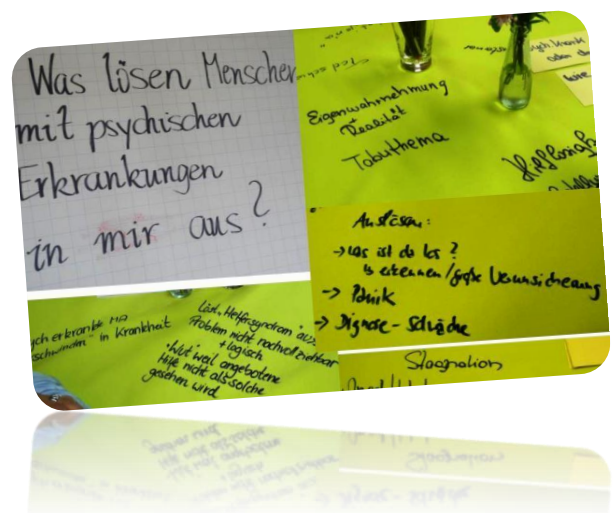 Was lösen Menschen
mit psychischen
Erkrankungen
in mir aus?
Eigenwahrnehmung
Realität
Tabuthema
Hilflosigk
Auslösen:
→ was ist da los?
erkennen / große Verunsicherung
→ Panik
→ Diagnose - Schwäche
Stagnation
ych erkrankte MA
"schwinden" in Krankheit
Löst "Helfersyndrom" aus
Problem nicht nachvollziehbar
+ logisch
"Wut" weil angebotene
Hilfe nicht als solche
gesehen wird